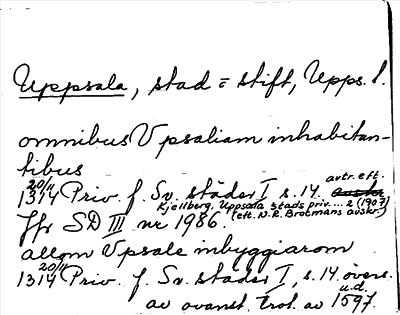 Uppsala, stad = stift, Upps. l.
omnibus Vpsaliam inhabitan-
tibus
avtr. eft.
20/11 1314 Priv. f. Sv. städer I s. 14.
Kjellberg, Uppsala stads priv. ... 2 (1907)
(eft. N.R. Brotmans avskr.)
Jfr SD III nr 1986.
allom Vpsale inbyggiarom
20/11 1314 Priv. f. Sv. städer I, s. 14. övers.
u.d.
av ovanst. trol. av 1597.